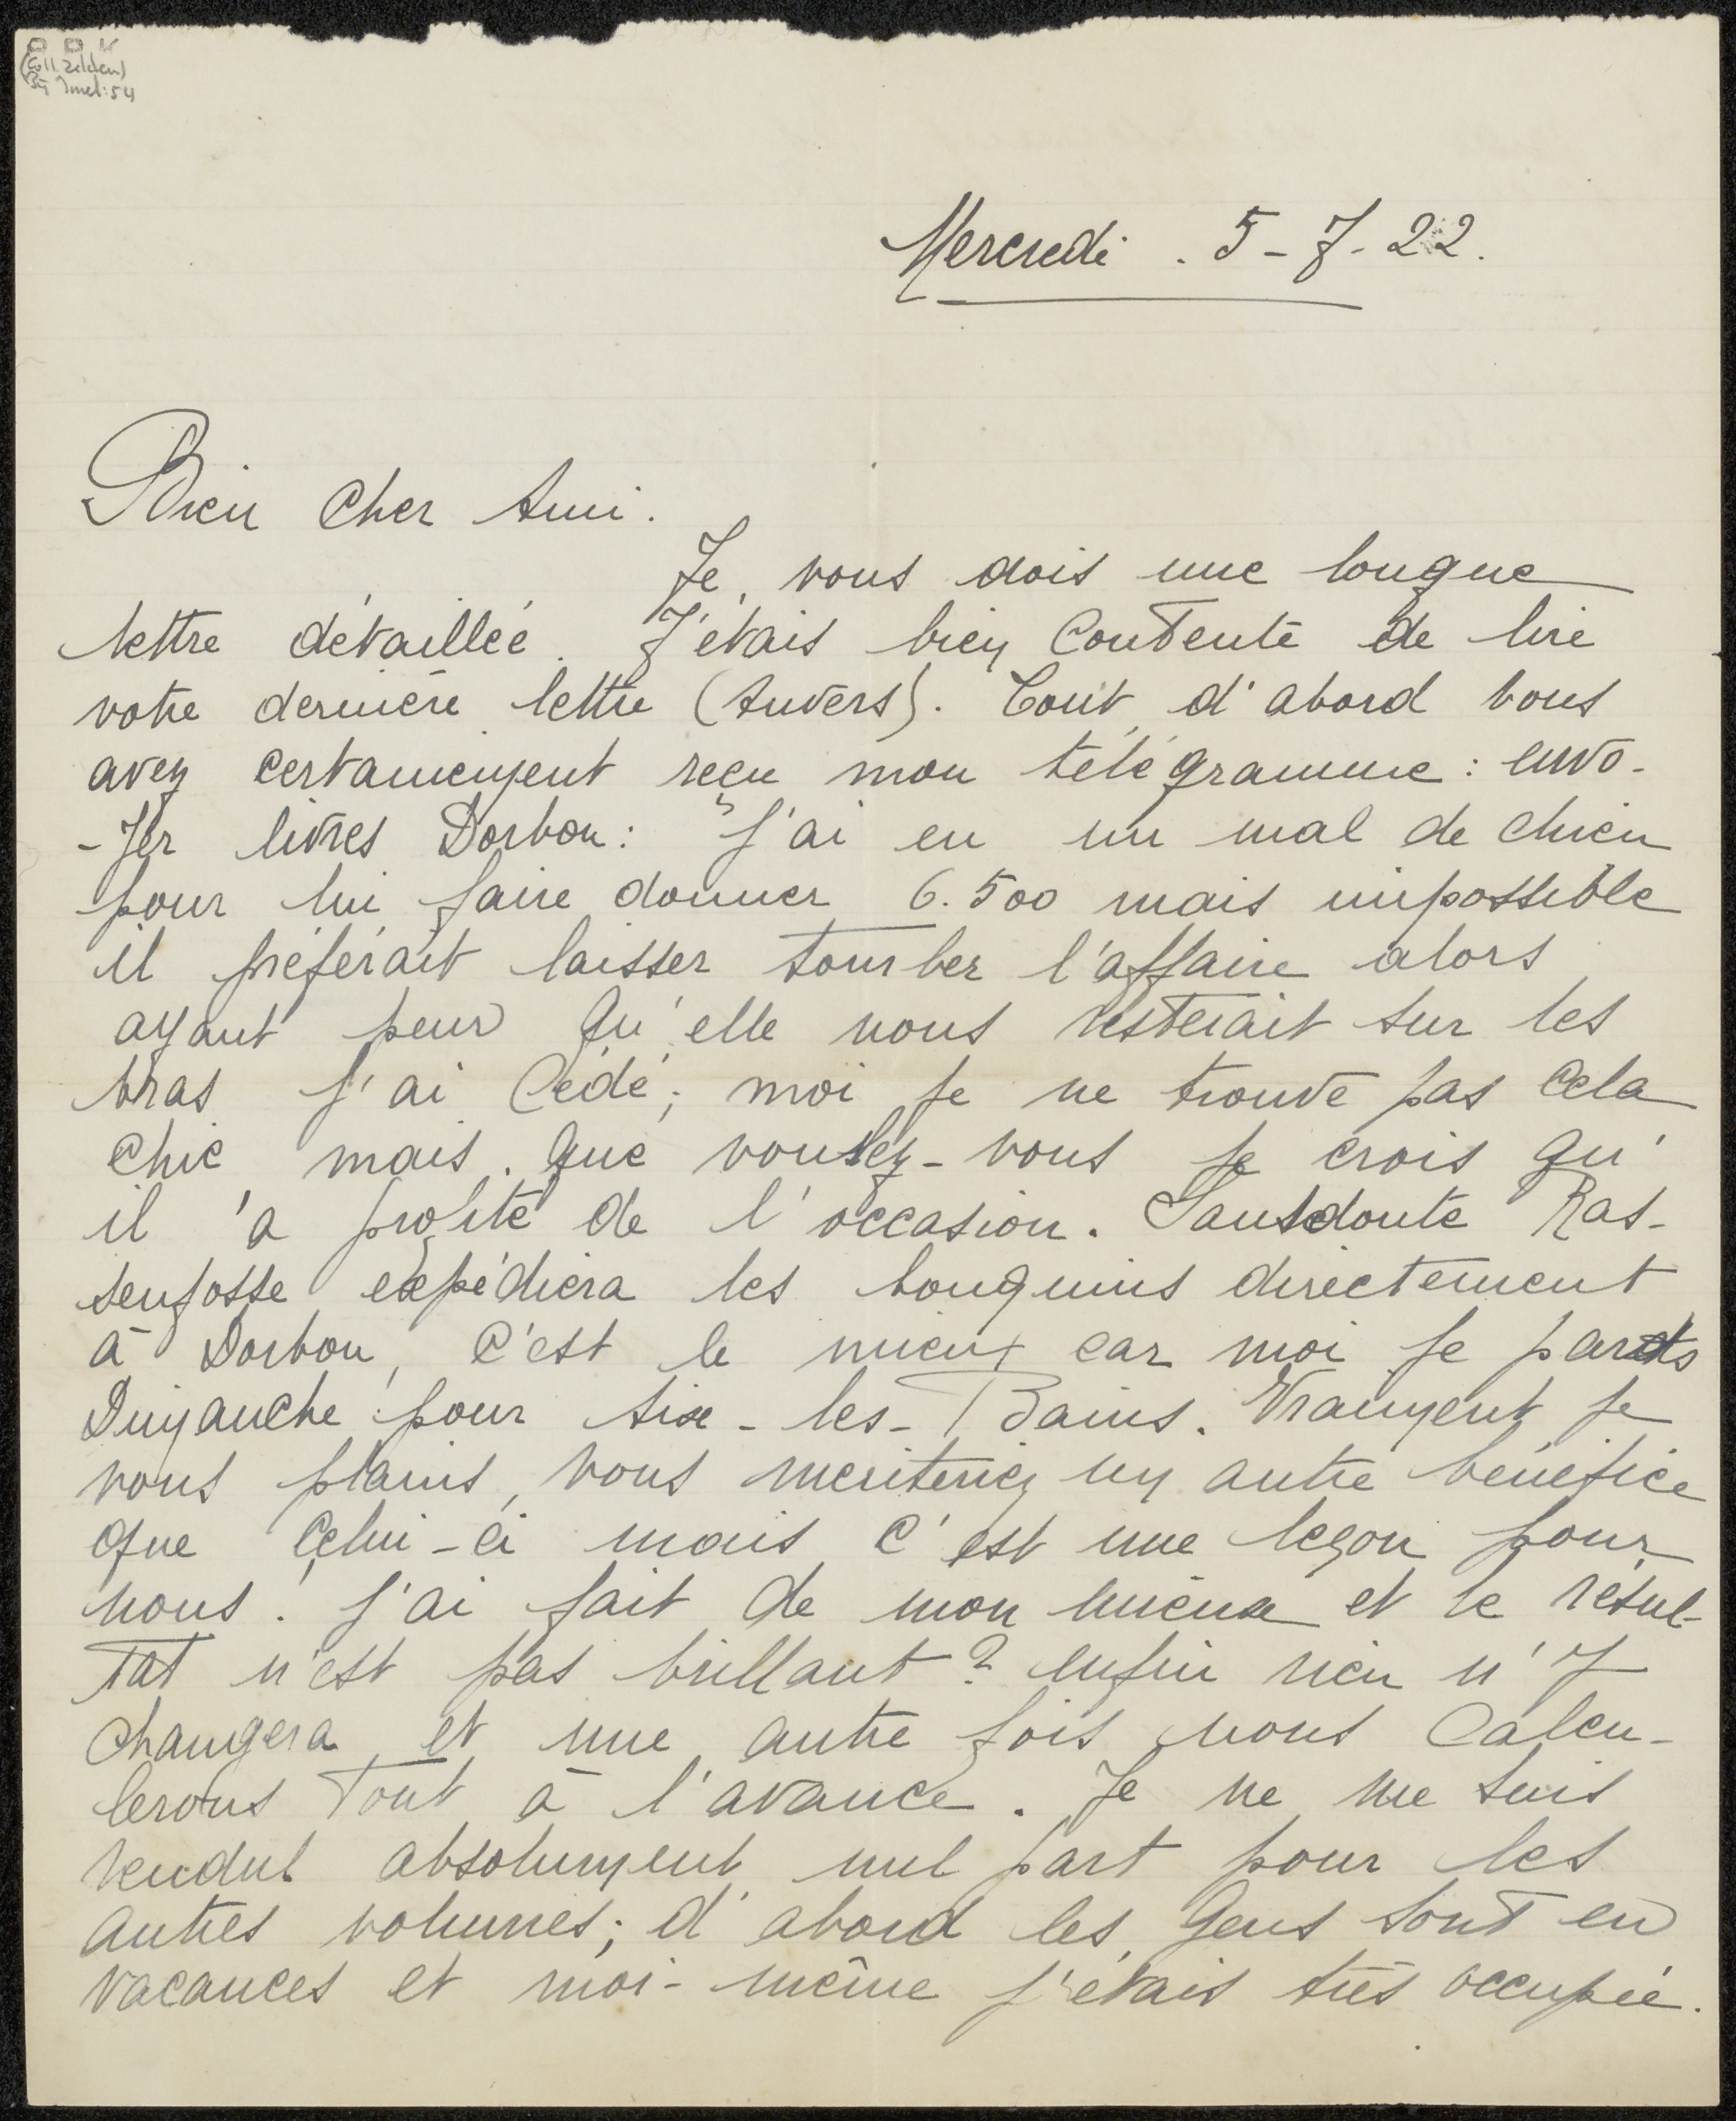 Mercredi . 5-7-22.
Bien Cher Ami.
Je vous dois une longue
lettre détaillée. J'étais bien Contente de lire
votre dernière lettre (Anvers). Tout d'abord vous
avez certainement reçu mon télégramme : envo-
-yer livres Dorbon : J'ai eu un mal de chien
pour lui faire donner 6.500 mais impossible
il préférait laisser tomber l'affaire alors
ayant peur qu'elle nous resterait sur les
bras j'ai cédé; moi je ne trouve pas cela
chic mais. que voulez-vous je crois qu'
il a profité de l'occasion. Sans doute Ras-
senfosse expédiera les bouquins directement
à Dorbon, c'est le mieux car moi je pars
Dimanche pour Aix-les-Bains. Vraiment je
vous plains, vous meriteriez un autre bénéfice
que celui-ci mais c'est une leçon pour
nous. J'ai fait de mon mieux et le résul-
tat n'est pas brillant? enfin rien n'y
changera et une autre fois nous calcu-
lerons tout à l'avance. Je ne me suis
rendut absolument nul part pour les
autres volumes; d'abord les gens sont en
vacances et moi-même j'étais très occupée.